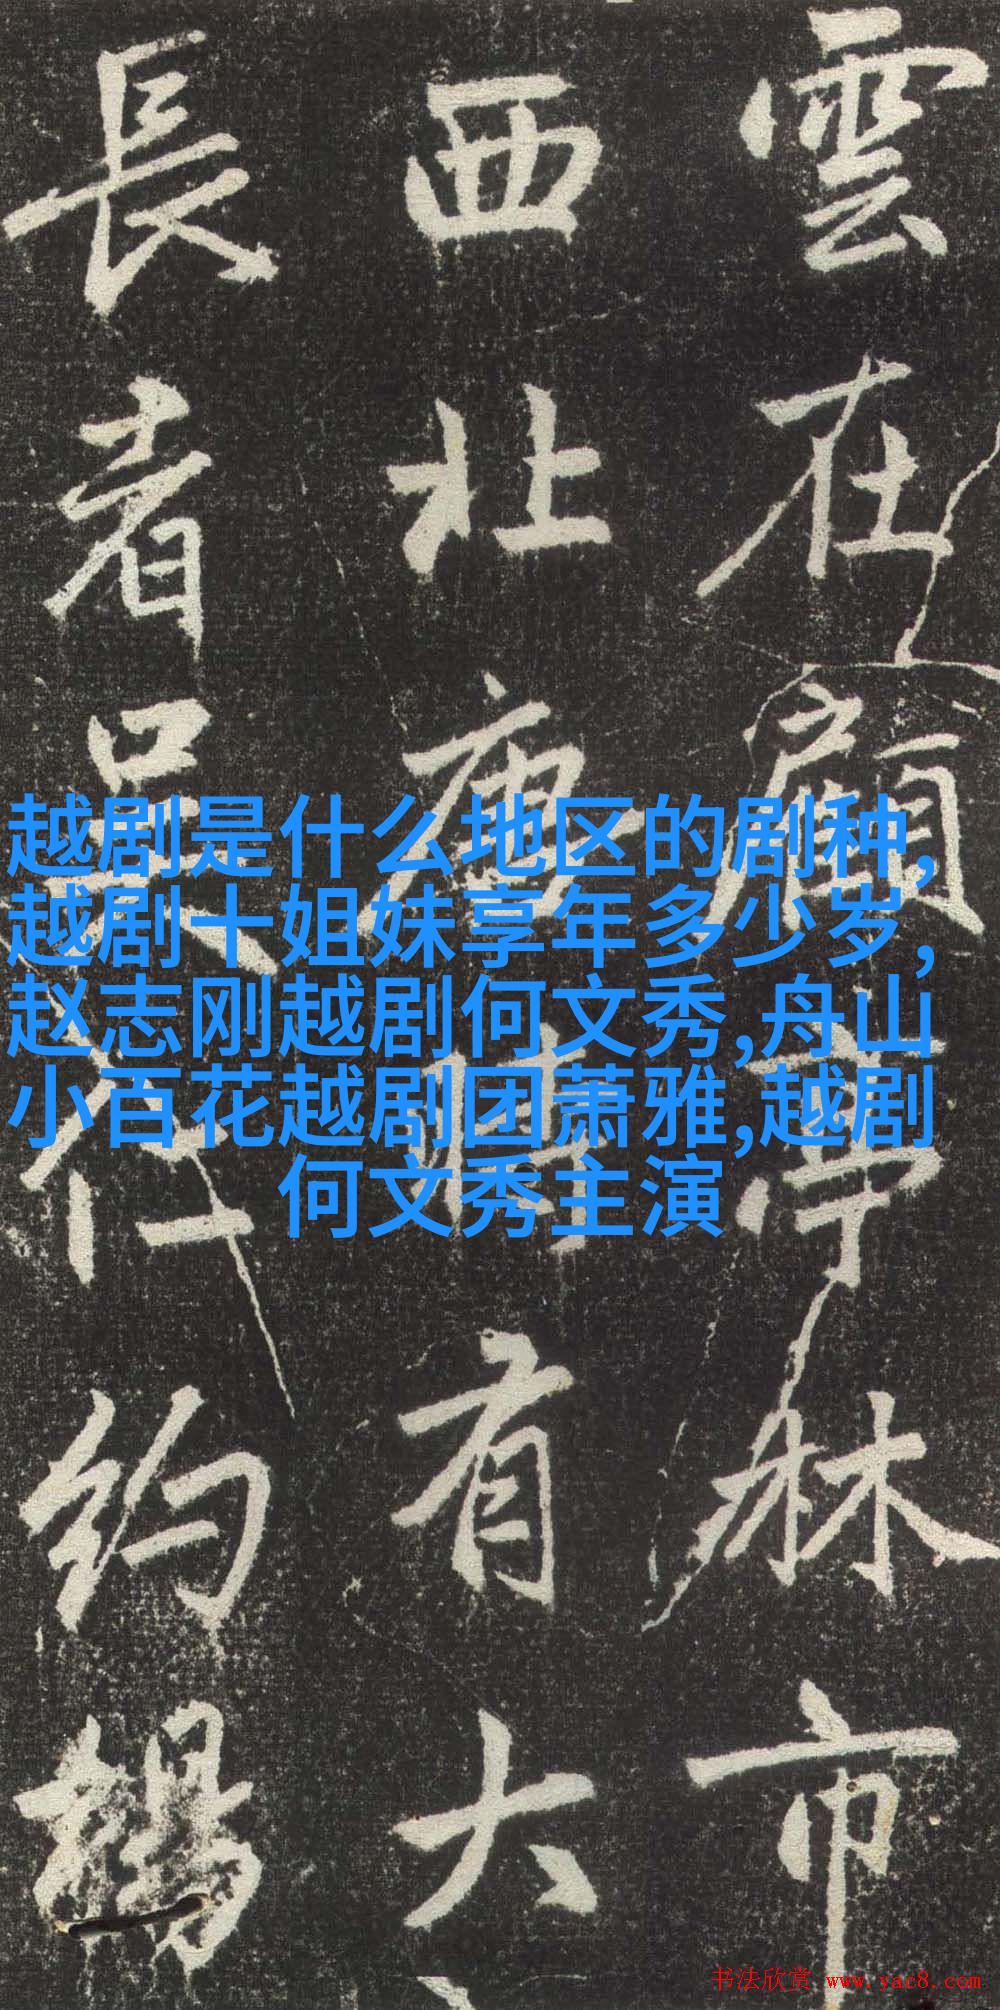 雲在顧亭林市
西北唐時有大
長者吳行約
越剧是什么地区的剧种,
越剧十姐妹享年多少岁,
赵志刚越剧何文秀,舟山
小百花越剧团萧雅,越剧
何文秀主演
书法欣赏 www.yac8.com